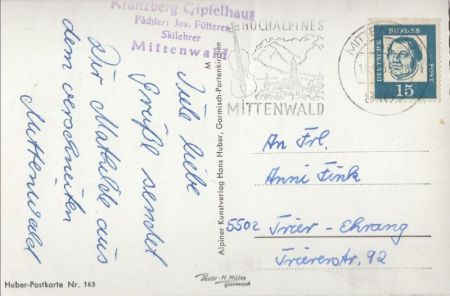 Kranzberg Gipfelhaus
Pächter: Jos. Fütterer
Skilehrer
Mittenwald
Viele liebe
Grüße sendet
Dir Mathilde aus
dem verschneiten
Mittenwald
HOCHALPINES
MITTENWALD
DEUTSCHE BUNDESPOST
15
An Frl.
Anni Fink
5502 Trier-Ehrang
Triererstr. 92
Alpiner Kunstverlag Hans Huber, Garmisch-Partenkirchen
Huber-Postkarte Nr. 163
Photo-H. Huber
Garmisch